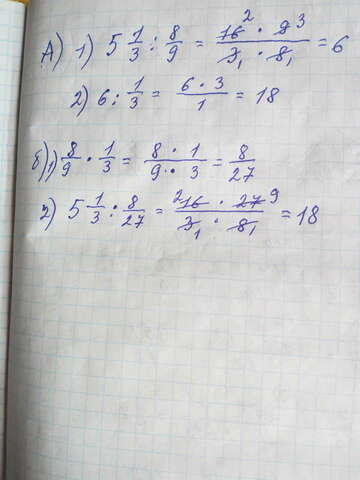 А) 1) 5 1/3 : 8/9 = (16² · 9³)/(3₁ · 8₁) = 6
2) 6 : 1/3 = (6 · 3)/1 = 18
б) 1) 8/9 · 1/3 = (8 · 1)/(9 · 3) = 8/27
2) 5 1/3 : 8/27 = (²16 · 27⁹)/(3₁ · 8₁) = 18